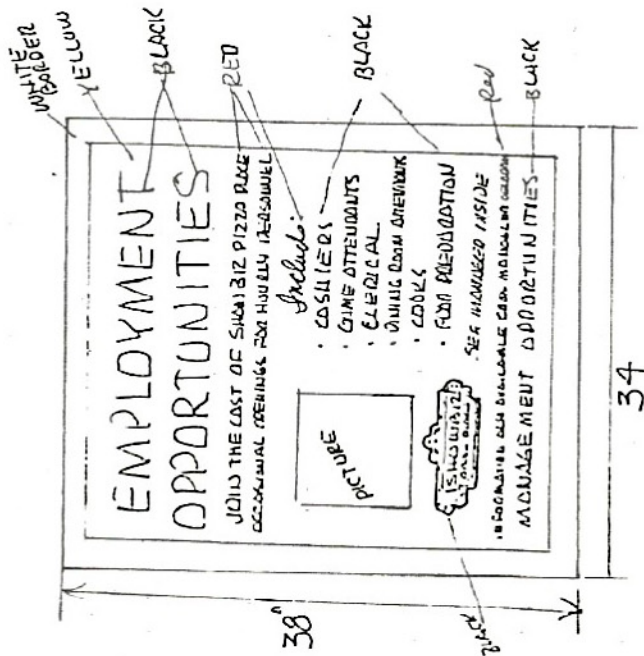 WHITE
BORDER
YELLOW
BLACK
RED
BLACK
Red
BLACK
EMPLOYMENT
OPPORTUNITIES
JOIN THE CAST OF SHOWBIZ PIZZA PLACE
OCCASIONAL OPENINGS FOR HOURLY PERSONNEL
Include:
• CASHIERS
• GAME ATTENDANTS
• CLERICAL
• DINING ROOM ATTENDANTS
• COOKS
• FOOD PREPARATION
PICTURE
SHOWBIZ
SEE MANAGER INSIDE
INFORMATION ALSO AVAILABLE
MANAGEMENT OPPORTUNITIES
BLACK
38"
34